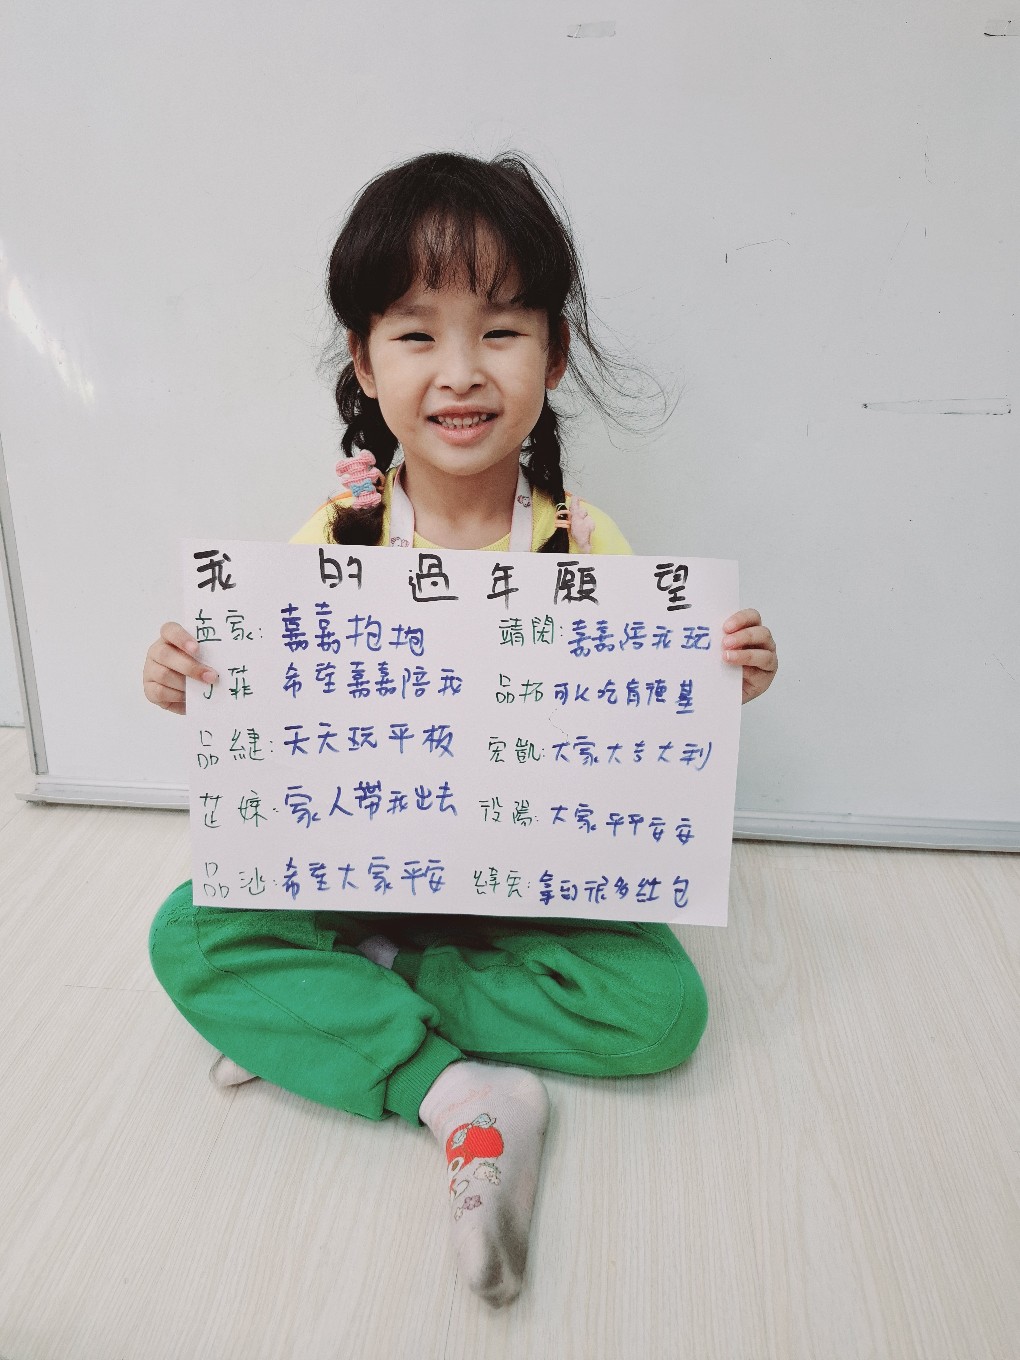 我的過年願望
孟家:嘉嘉抱抱
菲 希望嘉嘉陪我
品緁:天天玩平板
芷嫁:家人帶我出去
品沙:希望大家平安
靖閎:嘉嘉陪我玩
品拓 可以吃肯德基
宏凱:大家大吉大利
役陽:大家平平安安
緯宏:拿到很多紅包